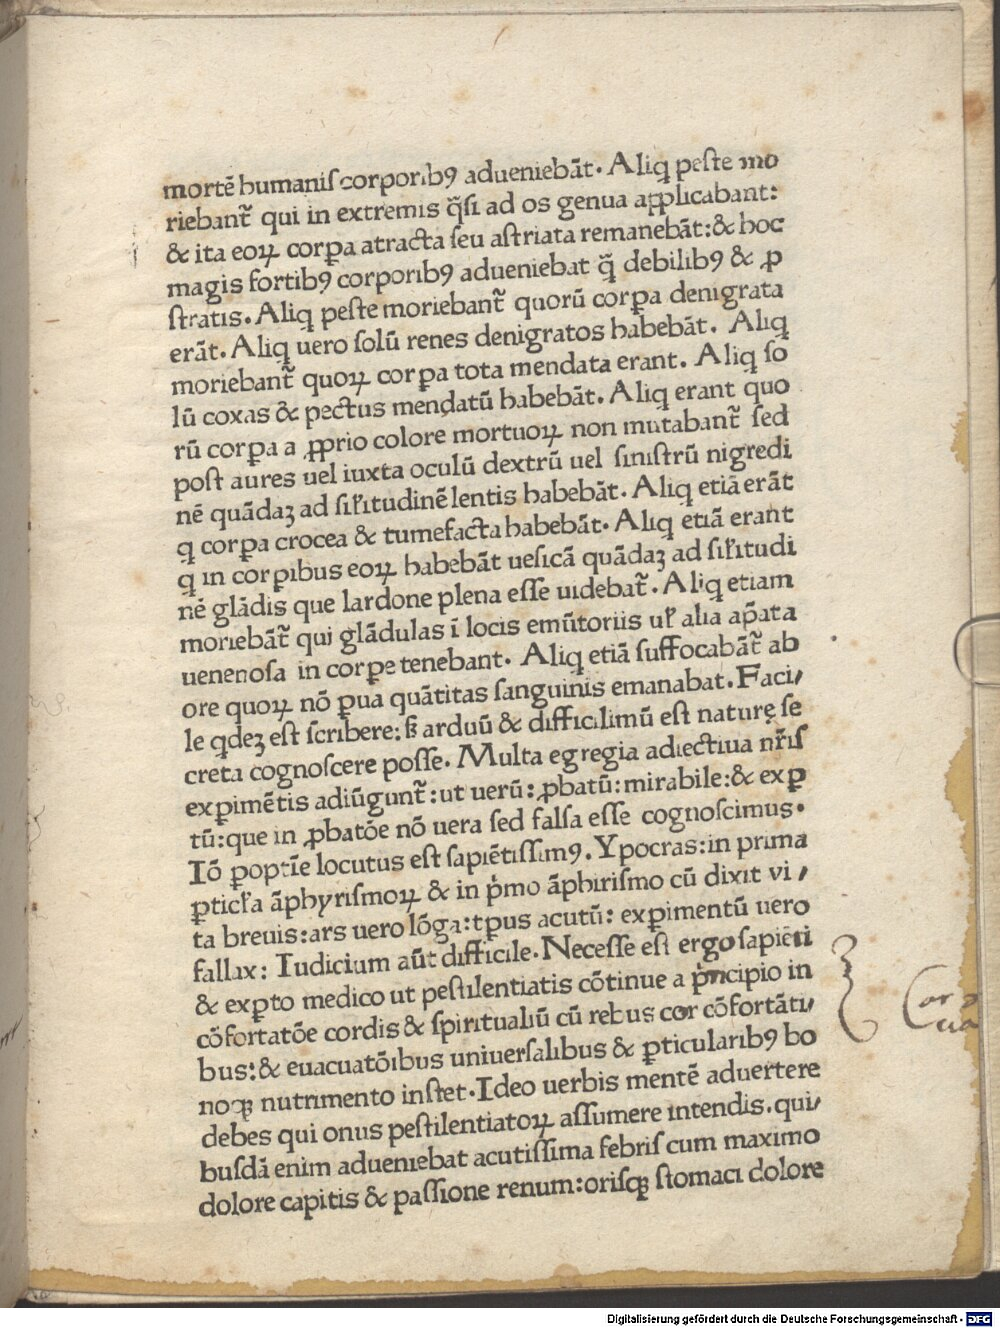 mortē humaniſ corporibꝰ adueniebāt. Aliꝗ peſte mo
riebant̃ qui in extremis q̃ſi ad os genua applicabant:
& ita eoꝝ corꝑa atracta ſeu aſtriata remanebāt: & hoc
magis fortibꝰ corporibꝰ adueniebat q̃ debilibꝰ & ꝓ
ſtratis. Aliꝗ peſte moriebant̃ quorū corꝑa denigrata
erāt. Aliꝗ uero ſolū renes denigratos habebāt. Aliꝗ
moriebant̃ quoꝝ corꝑa tota mendata erant. Aliꝗ ſo
lū coxas & pectus mendatū habebāt. Aliꝗ erant quo
rū corꝑa a ꝓprio colore mortuoꝝ non mutabant̃ ſed
poſt aures uel iuxta oculū dextrū uel ſiniſtrū nigredi
nē quādaꝫ ad ſiľitudinē lentis habebāt. Aliꝗ etiā erāt
ꝗ corꝑa crocea & tumefacta habebāt. Aliꝗ etiā erant
ꝗ in corꝑibus eoꝝ habebāt ueſicā quādaꝫ ad ſiľitudi
nē glādis que lardone plena eſſe uidebat̃. Aliꝗ etiam
moriebāt̃ qui glādulas ī locis emūtoriis uľ alia aꝑata
uenenoſa in corꝑe tenebant. Aliꝗ etiā ſuffocabāt̃ ab
ore quoꝝ nō ꝑua quātitas ſanguinis emanabat. Faci,
le ꝗdeꝫ eſt ſcribere: ſꝫ arduū & difficilimū eſt naturę ſe
creta cognoſcere poſſe. Multa egregia adiectiua nr̃iſ
exꝑimētis adiūgunt̃: ut uerū: ꝓbatū: mirabile: & exꝑ
tū: que in ꝓbatōe nō uera ſed falſa eſſe cognoſcimus.
Iō ꝓoptīe locutus eſt ſapiētiſſimꝰ. Ypocras: in prima
ꝑticľa āphyriſmoꝝ & in pͥmo āphiriſmo cū dixit vi,
ta breuis: ars uero lōga: tꝑus acutū: exꝑimentū uero
fallax: Iudicium aūt difficile. Neceſſe eſt ergo ſapiēti
& exꝑto medico ut peſtilentiatis cōtinue a pͥncipio in
cōfortatōe cordis & ſpiritualiū cū rebus cor cōfortāti,
bus: & euacuatōibus uniuerſalibus & ꝑticularibꝰ bo
noꝗꝫ nutrimento inſtet. Ideo uerbis mentē aduertere
debes qui onus peſtilentiatoꝝ aſſumere intendis. qui,
buſdā enim adueniebat acutiſſima febriſ cum maximo
dolore capitis & paſſione renum: oriſqꝫ ſtomaci dolore
Digitalisierung gefördert durch die Deutsche Forschungsgemeinschaft - DFG